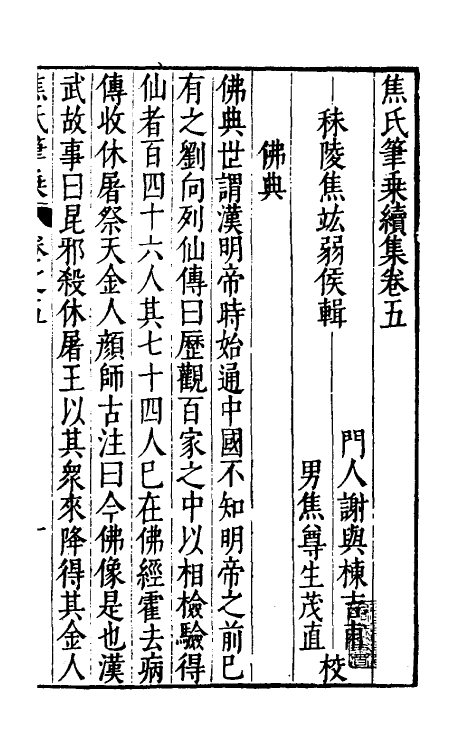 焦氏筆乗續集卷五
秣陵焦竑弱侯輯
門人謝與棟吉甫
男焦尊生茂直
校
佛典
佛典世謂漢明帝時始通中國不知明帝之前已
有之劉向列仙傳曰歷觀百家之中以相檢驗得
仙者百四十六人其七十四人已在佛經霍去病
傳收休屠祭天金人顏師古注曰今佛像是也漢
武故事曰昆邪殺休屠王以其衆來降得其金人
焦氏筆乗
卷之五
一